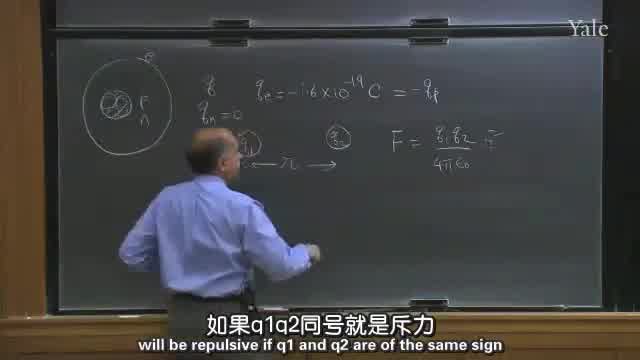 Yale
e
q qe = -1.6 × 10^-19 C = -qp
qn = 0
q1 q2 F = q1q2 / 4πε0
← r →
如果q1q2同号就是斥力
will be repulsive if q1 and q2 are of the same sign